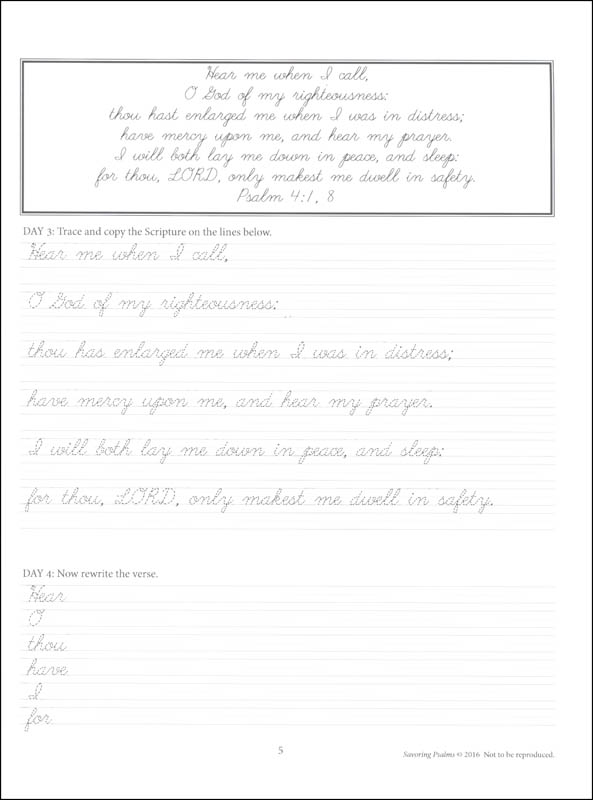 Hear me when I call,
O God of my righteousness:
thou hast enlarged me when I was in distress;
have mercy upon me, and hear my prayer.
I will both lay me down in peace, and sleep:
for thou, LORD, only makest me dwell in safety.
Psalm 4:1, 8
DAY 3: Trace and copy the Scripture on the lines below.
Hear me when I call,
O God of my righteousness:
thou has enlarged me when I was in distress;
have mercy upon me, and hear my prayer.
I will both lay me down in peace, and sleep:
for thou, LORD, only makest me dwell in safety.
DAY 4: Now rewrite the verse.
Hear
O
thou
have
I
for
5
Savoring Psalms © 2016 Not to be reproduced.